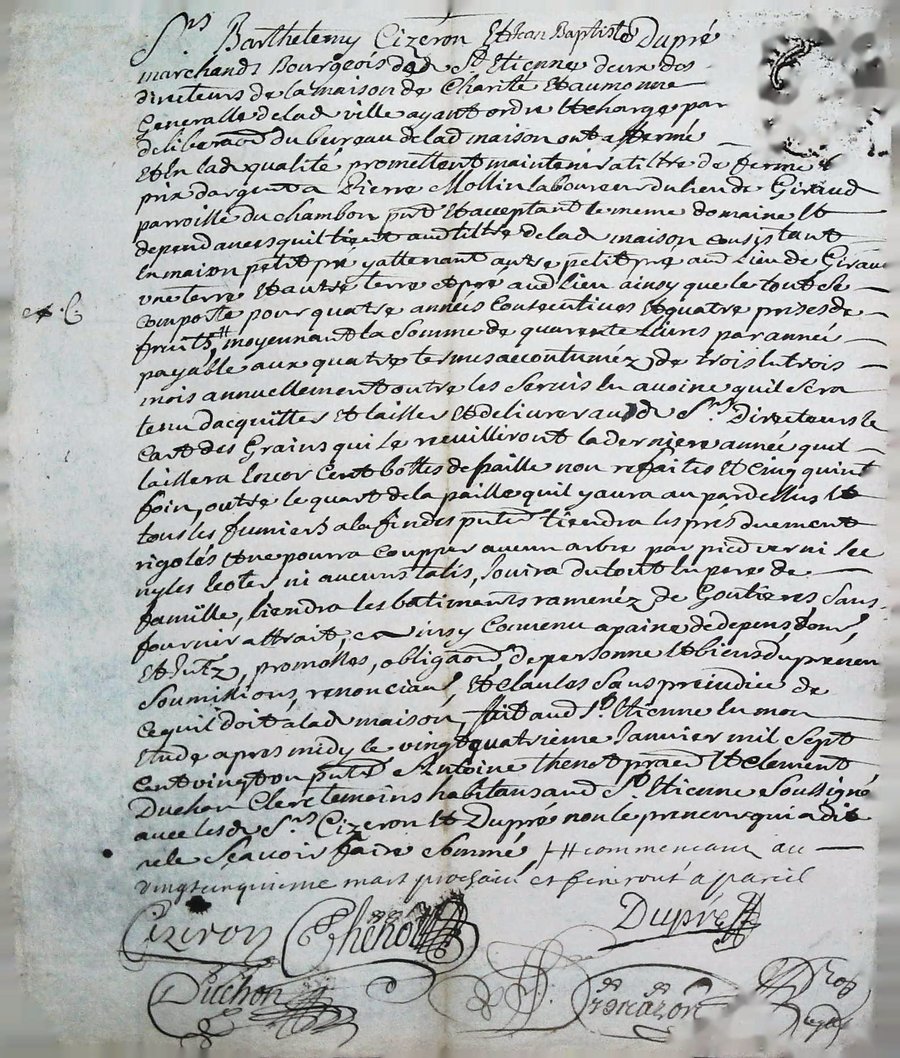 Srs Barthelemy Cizeron Et Jean Baptiste Dupré
marchands Bourgeois de St Etienne deux des
directeurs de la maison de Charité Et aumonne
Generalle de lad ville ayant ordre Et charge par
deliberaon du bureau de lad maison ont affermé
Et En lad qualité promettent maintenir a tiltre de ferme
prix dargent a Pierre Mollin laboureur du lieu de Giraud
parroisse du Chambon pnt Et acceptant le meme domaine Et
dependances quil tient aud tiltre de lad maison consistant
En maison petit pré y attenant autre petit pré aud lieu de Giraud
une terre Et autre terre et pré aud lieu ainsy que le tout se
composte pour quatre années Consecutives Et quatre prises de
fruits # moyennant la somme de quarente Livres par année
payable aux quatre termes accoutuméz de trois En trois
mois annuellement outre les Servis En avoine quil sera
tenu dacquitter Et laisser Et delivrer auxd Srs Directeurs le
Cart des Grains qui se recuilliront la derniere année quil
laissera Encor Cent bottes de paille non refaites Et cinq quint
foin, outre le quart de la paille quil y aura au pardessus Et
tous les fumiers a la fin des pntes tiendra les prés duement
rigolés Et ne pourra coupper aucun arbre par pied verd ni sec
ny les ecoter ni aucuns talis, Jouira du tout En pere de
famille, tiendra les bâtiments ramenéz de Goutieres Sans
fournir attrait, ainsy Convenu a paine de depens dom
Et Intz, promesses, obligaons de personne Et biens du preneur
Soumissions, renonciaons, Et clauses Sans prejudice de
Ce quil doit a lad maison, fait aud St Etienne En mon
Etude apres midy le vingt quatrieme Janvier mil Sept
Cent vingt un pnts Antoine thenot pracn Et Clement
Duchon Clerc temoins habitans aud St Etienne Soussigné
avec lesd Srs Cizeron Et Dupré non le preneur qui a dit
ne le Scavoir faire Sommé # commencant au
vingt cinquieme mars prochain et finiront a pareil
Cizeron Thenot Dupré
Duchon